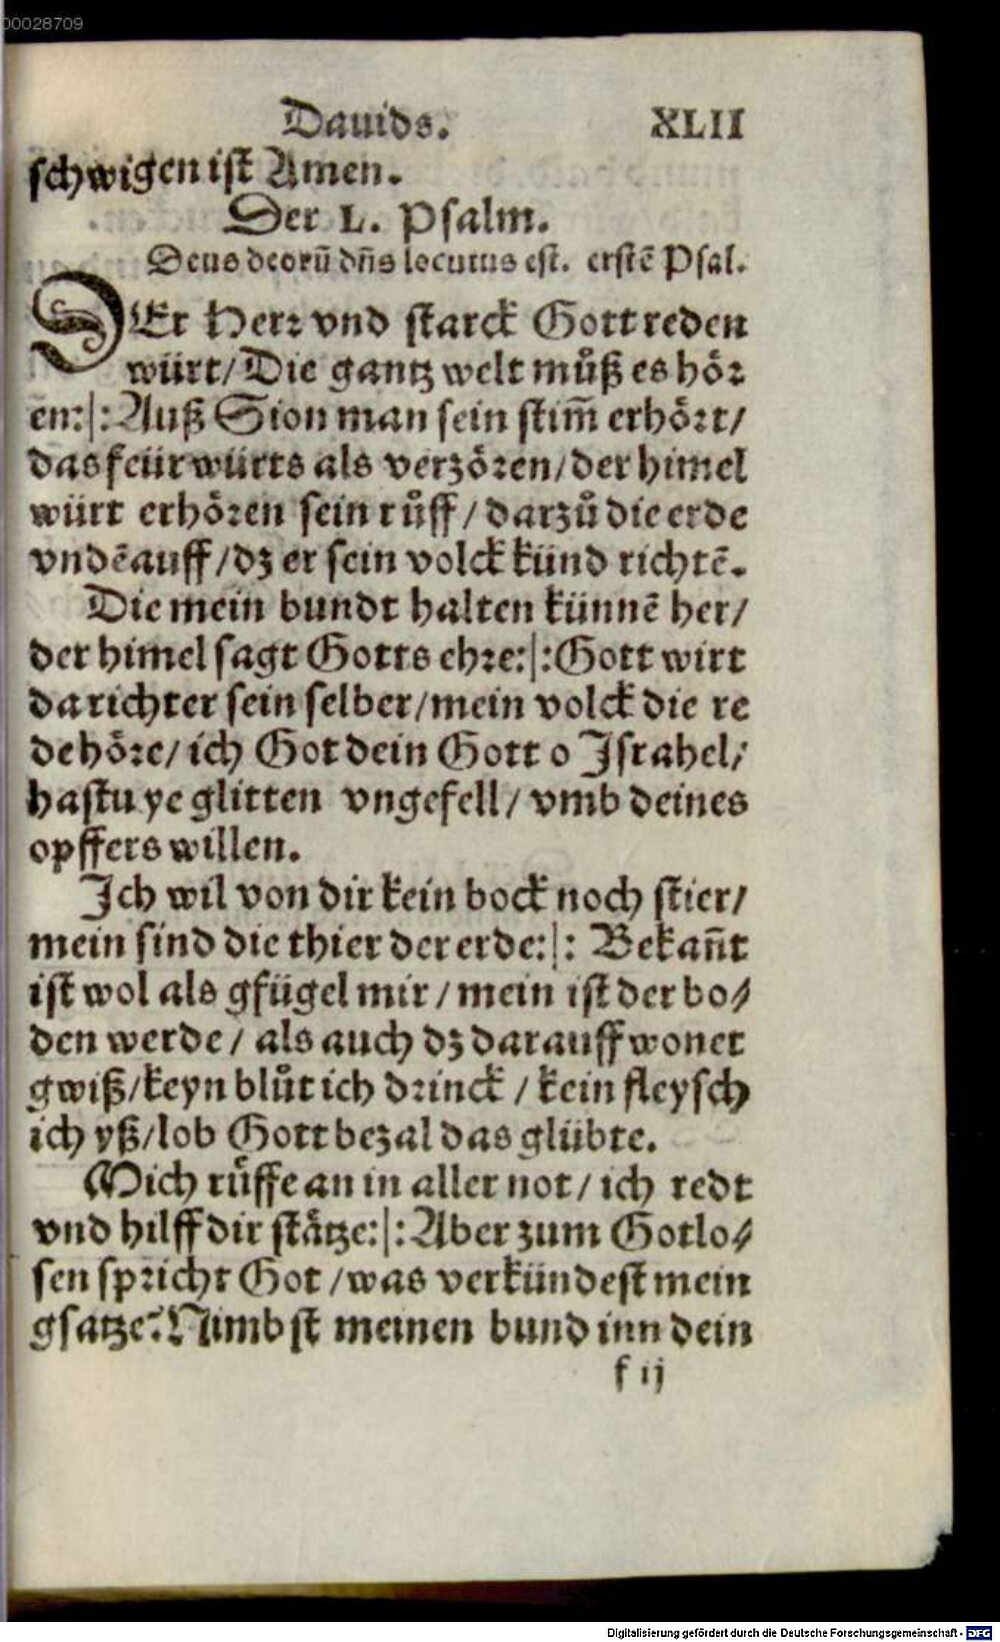 00028709
Dauids. XLII
schwigen ist Amen.
Der L. Psalm.
Deus deorū dñs locutus est. erstē Psal.
DEr Herꝛ vnd starck Gott reden
würt/ Die gantz welt muͦß es hoͤꝛ
en:|: Auß Sion man sein stim̄ erhoͤꝛt/
das feür würts als verzoͤꝛen/ der himel
würt erhoͤꝛen sein ruͦff/ darzuͦ die erde
vndē auff/ dz er sein volck künd richtē.
Die mein bundt halten künnē her/
der himel sagt Gotts ehꝛe:|: Gott wirt
da richter sein selber/ mein volck die re
de hoͤꝛe/ ich Got dein Gott o Israhel/
hastu ye glitten vngefell/ vmb deines
opffers willen.
Ich wil von dir kein bock noch stier/
mein sind die thier der erde:|: Bekañt
ist wol als gfügel mir/ mein ist der bo⸗
den werde/ als auch dz darauff wonet
gwiß/ keyn bluͦt ich dꝛinck/ kein fleysch
ich yß/ lob Gott bezal das glübte.
Mich ruͤffe an in aller not/ ich redt
vnd hilff dir staͤtze:|: Aber zum Gotlo⸗
sen spꝛicht Got/ was verkündest mein
gsatze? Nimbst meinen bund inn dein
f ij
Digitalisierung gefördert durch die Deutsche Forschungsgemeinschaft - DFG